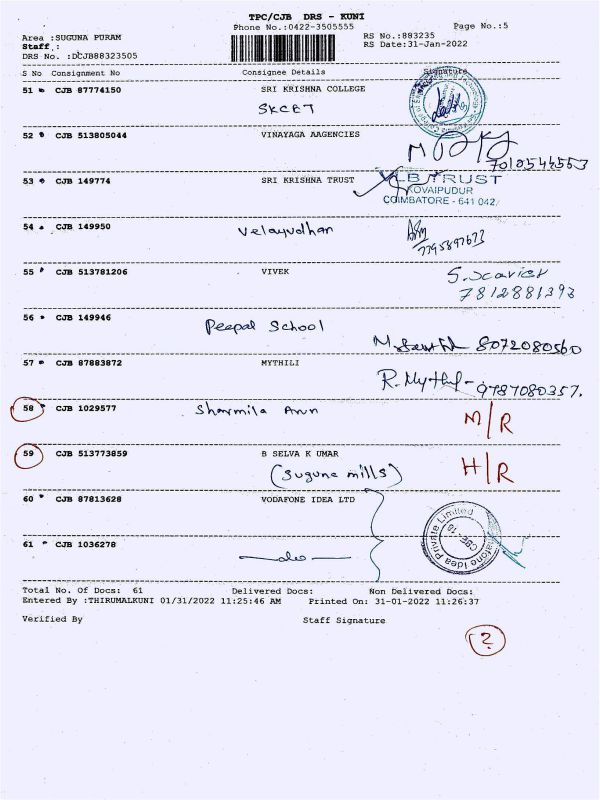 TPC/CJB DRS - KUNI
Phone No.:0422-3505555
Page No.:5
Area :SUGUNA PURAM
RS No.:883235
Staff :
RS Date:31-Jan-2022
DRS No. :DCJB88323505
S No Consignment No Consignee Details Signature
51 CJB 87774150 SRI KRISHNA COLLEGE
SKCET
52 CJB 513805044 VINAYAGA AAGENCIES
7010544553
53 CJB 149774 SRI KRISHNA TRUST
LBTRUST
KOVAIPUDUR
COIMBATORE - 641 042.
54 CJB 149950 Velayudhan
7795897673
55 CJB 513781206 VIVEK
S. Scavier
7812881393
56 CJB 149946 Peepal School
M. 8072080560
57 CJB 87883872 MYTHILI
R. Mythil - 9787080357.
58 CJB 1029577 Sharmila Arun M/R
59 CJB 513773859 B SELVA K UMAR
(Suguna mills) H/R
60 CJB 87813628 VODAFONE IDEA LTD
Vodafone Idea Private Limited
61 CJB 1036278
Total No. Of Docs: 61 Delivered Docs: Non Delivered Docs:
Entered By :THIRUMALKUNI 01/31/2022 11:25:46 AM Printed On: 31-01-2022 11:26:37
Verified By Staff Signature
?